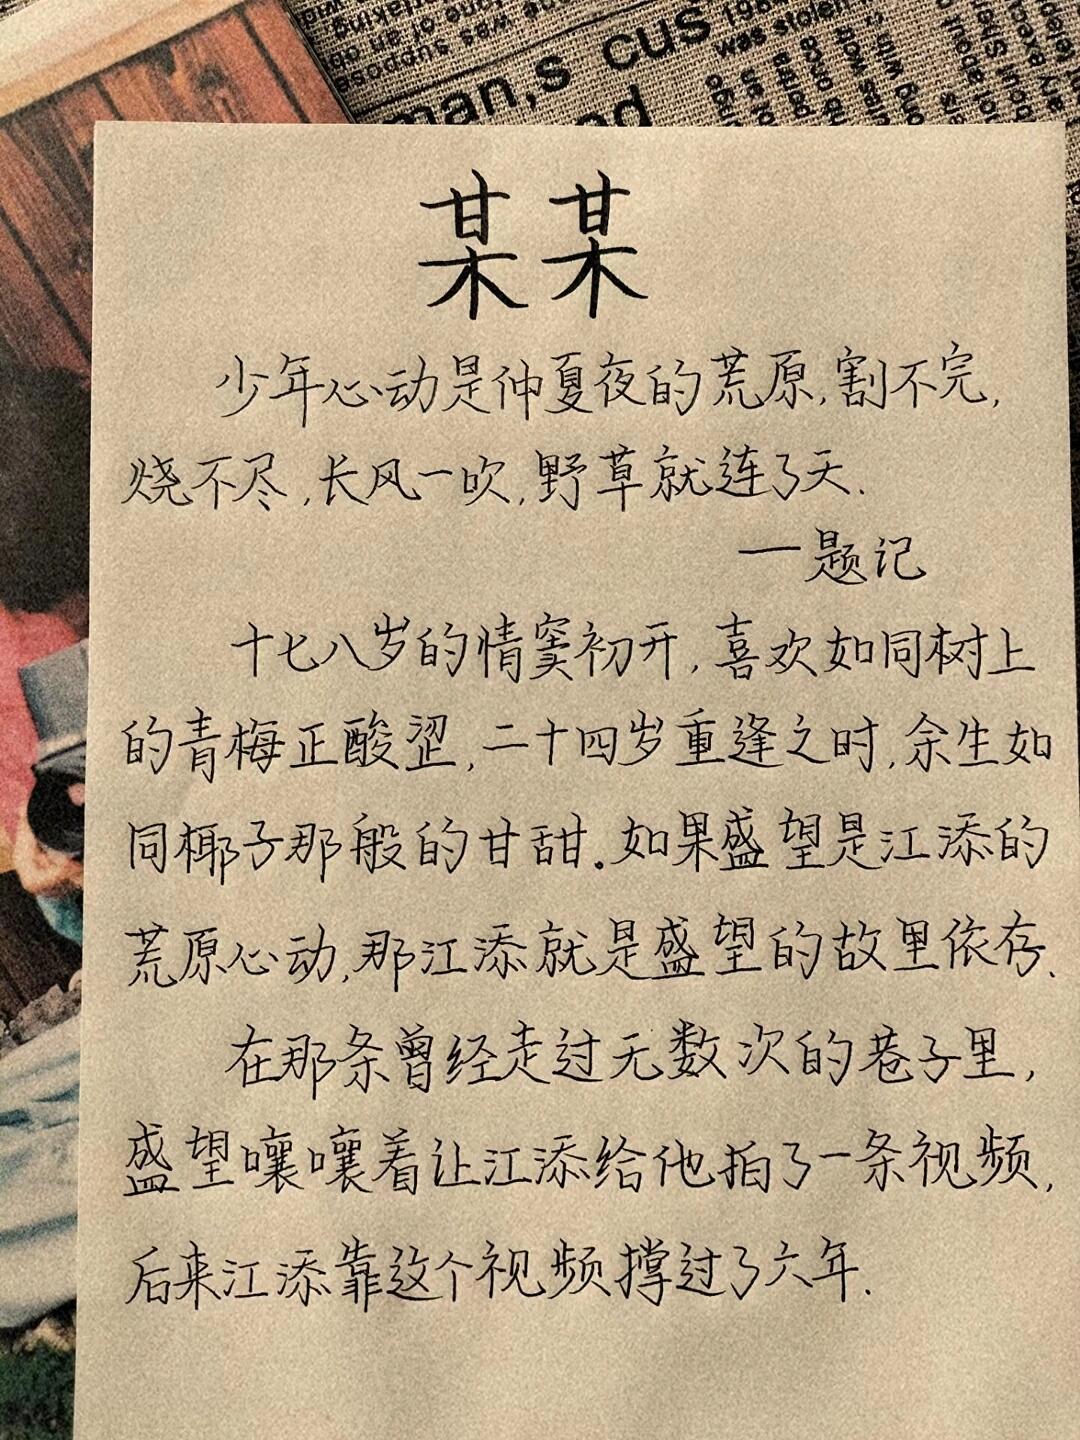 man,s cus
某某
少年心动是仲夏夜的荒原,割不完,
烧不尽,长风一吹,野草就连了天.
一题记
十七八岁的情窦初开,喜欢如同树上
的青梅正酸涩,二十四岁重逢之时,余生如
同椰子那般的甘甜.如果盛望是江添的
荒原心动,那江添就是盛望的故里依存.
在那条曾经走过无数次的巷子里,
盛望嚷嚷着让江添给他拍了一条视频,
后来江添靠这个视频撑过了六年.